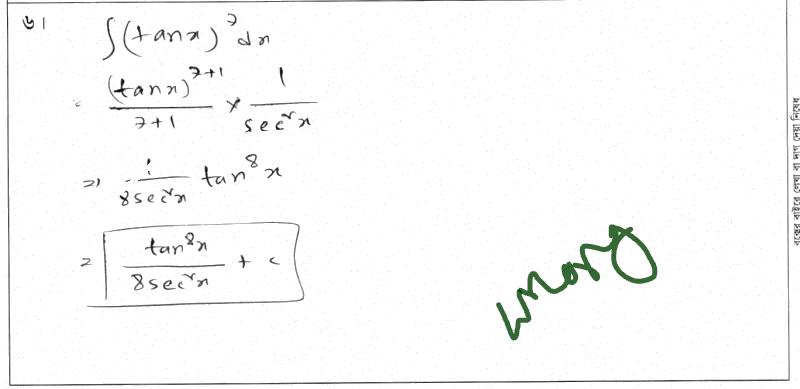 ৬।
∫(tanx)⁷dx
= (tanx)⁷⁺¹/7+1 × 1/sec²x
=> 1/8sec²x tan⁸x
= tan⁸x/8sec²x + c
wrong
বক্সের বাইরে লেখা বা দাগ দেয়া নিষেধ